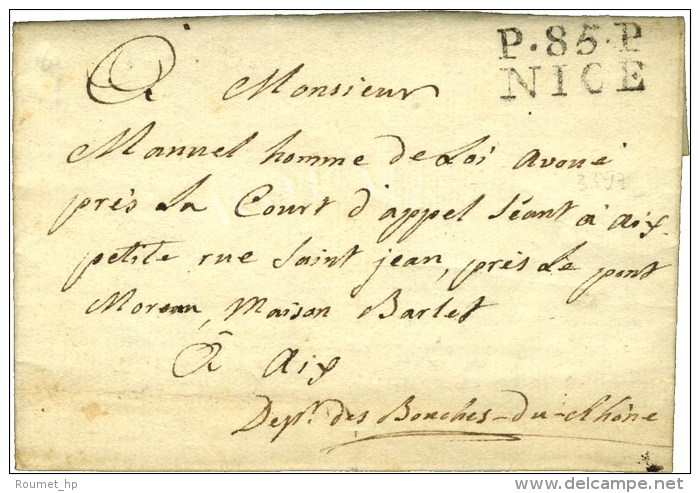 P.85.P
NICE
A Monsieur
Manuel homme de Loi avoué
3397
près La Court d'appel Séant à aix
petite rue Saint jean, près Le pont
Moreau, Maison Barlet
À aix
Dep.t des Bouches-du-Rhône
Roumet_hp
delcampe.net